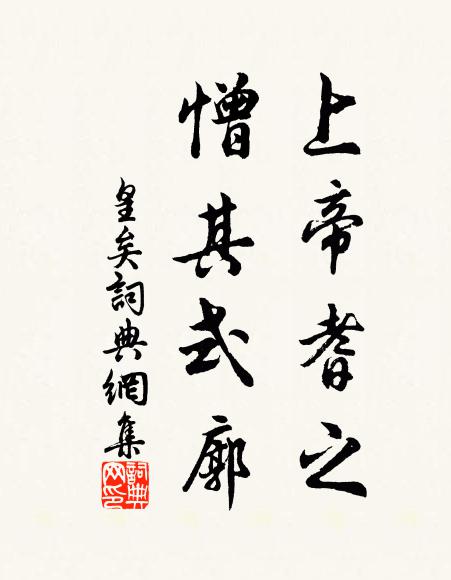 上帝耆之
憎其式廓
皇矣詞典網集
詞典网印